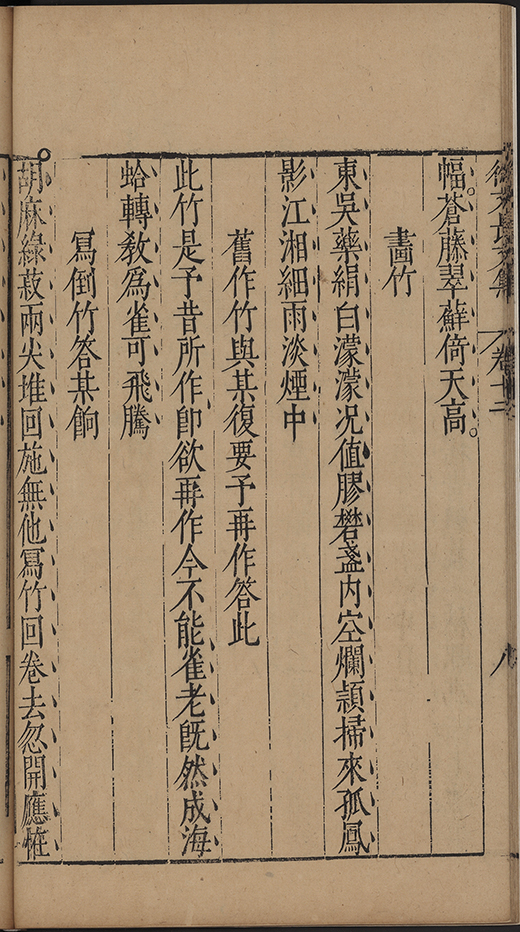 徐文長文集 卷十二 八
幅蒼藤翠蘚倚天高
畫竹
東吳藥絹白濛濛况值膠礬盞內空爛頴掃來孤鳳
影江湘細雨淡煙中
舊作竹與某復要予再作答此
此竹是予昔所作卽欲再作今不能雀老旣然成海
蛤轉敎爲雀可飛騰
冩倒竹答某餉
胡麻綠菽兩尖堆回施無他冩竹回卷去忽開應怪